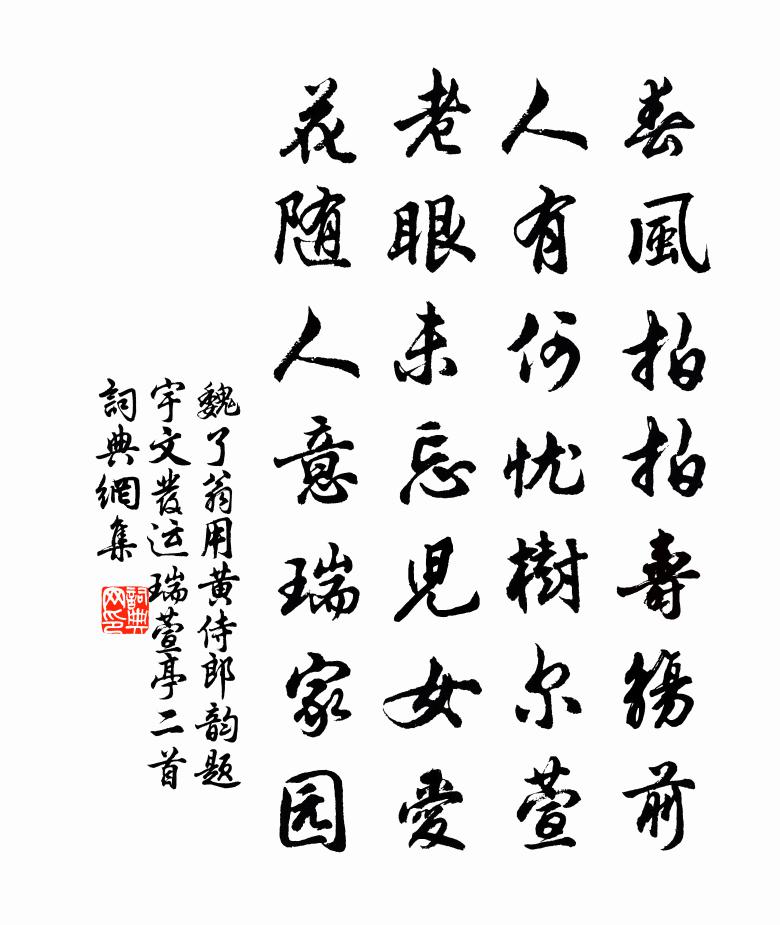 春風拍拍壽觴前
人有何忧樹尔萱
老眼未忘児女愛
花随人意瑞家园
魏了翁用黄侍郎韵题
宇文發运瑞萱亭二首
詞典網集
詞典网印